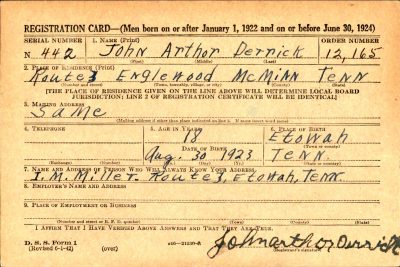 REGISTRATION CARD—(Men born on or after January 1, 1922 and on or before June 30, 1924)
SERIAL NUMBER 1. NAME (Print) ORDER NUMBER
N 442 John Arthor Derrick 12,165
(First) (Middle) (Last)
2. PLACE OF RESIDENCE (Print)
Route 3 Englewood McMinn Tenn
(Number and street) (Town, township, village, or city) (County) (State)
[THE PLACE OF RESIDENCE GIVEN ON THE LINE ABOVE WILL DETERMINE LOCAL BOARD
JURISDICTION; LINE 2 OF REGISTRATION CERTIFICATE WILL BE IDENTICAL]
3. MAILING ADDRESS
Same
[Mailing address if other than place indicated on line 2. If same insert word same]
4. TELEPHONE 5. AGE IN YEARS 6. PLACE OF BIRTH
18 Etowah
DATE OF BIRTH (Town or county)
Aug. 30 1923 Tenn
(Exchange) (Number) (Mo.) (Day) (Yr.) (State or country)
7. NAME AND ADDRESS OF PERSON WHO WILL ALWAYS KNOW YOUR ADDRESS
I. M. Miller Route 3, Etowah, Tenn.
8. EMPLOYER'S NAME AND ADDRESS
9. PLACE OF EMPLOYMENT OR BUSINESS
(Number and street or R. F. D. number) (Town) (County) (State)
I AFFIRM THAT I HAVE VERIFIED ABOVE ANSWERS AND THAT THEY ARE TRUE.
D. S. S. Form 1
(Revised 6-1-42) (over) John arthor Derrick
(Registrant's signature)